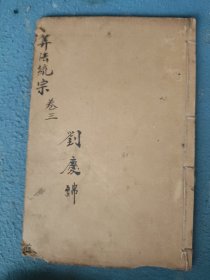 算法統宗 卷三
劉慶錦